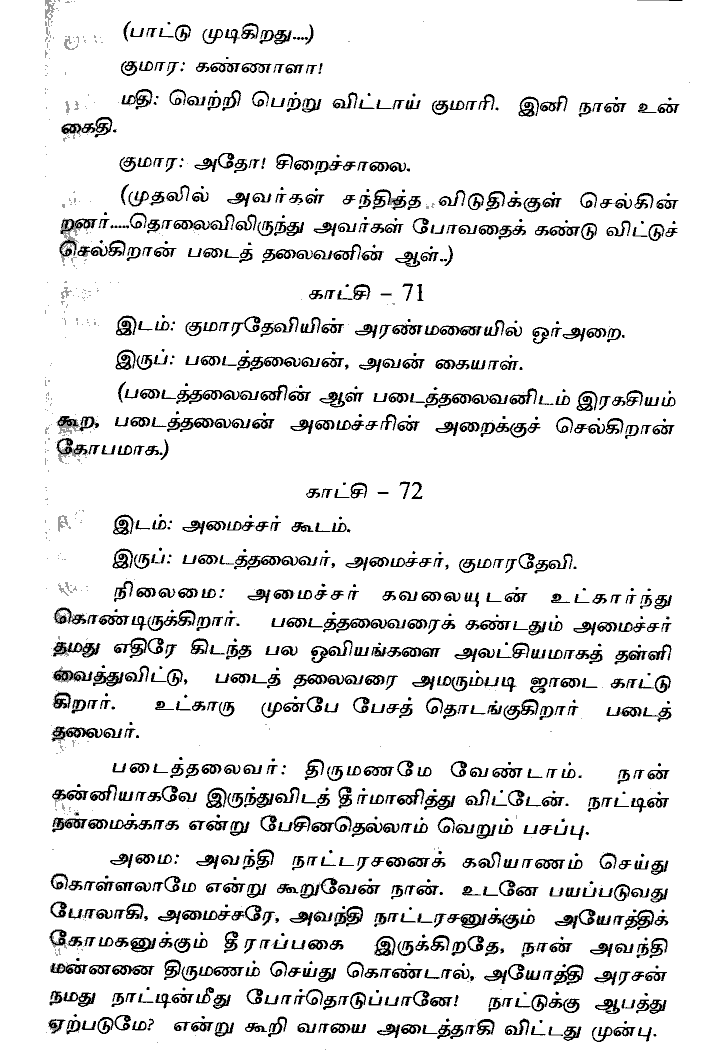 (பாட்டு முடிகிறது....)
குமார: கண்ணாளா!
மதி: வெற்றி பெற்று விட்டாய் குமாரி. இனி நான் உன்
கைதி.
குமார: அதோ! சிறைச்சாலை.
(முதலில் அவர்கள் சந்தித்த விடுதிக்குள் செல்கின்
றனர்.....தொலைவிலிருந்து அவர்கள் போவதைக் கண்டு விட்டுச்
செல்கிறான் படைத் தலைவனின் ஆள்..)
காட்சி – 71
இடம்: குமாரதேவியின் அரண்மனையில் ஓர்அறை.
இருப்: படைத்தலைவன், அவன் கையாள்.
(படைத்தலைவனின் ஆள் படைத்தலைவனிடம் இரகசியம்
கூற, படைத்தலைவன் அமைச்சரின் அறைக்குச் செல்கிறான்
கோபமாக.)
காட்சி – 72
இடம்: அமைச்சர் கூடம்.
இருப்: படைத்தலைவர், அமைச்சர், குமாரதேவி.
நிலைமை: அமைச்சர் கவலையுடன் உட்கார்ந்து
கொண்டிருக்கிறார். படைத்தலைவரைக் கண்டதும் அமைச்சர்
தமது எதிரே கிடந்த பல ஓவியங்களை அலட்சியமாகத் தள்ளி
வைத்துவிட்டு, படைத் தலைவரை அமரும்படி ஜாடை காட்டு
கிறார். உட்காரு முன்பே பேசத் தொடங்குகிறார் படைத்
தலைவர்.
படைத்தலைவர்: திருமணமே வேண்டாம். நான்
கன்னியாகவே இருந்துவிடத் தீர்மானித்து விட்டேன். நாட்டின்
நன்மைக்காக என்று பேசினதெல்லாம் வெறும் பசப்பு.
அமை: அவந்தி நாட்டரசனைக் கலியாணம் செய்து
கொள்ளலாமே என்று கூறுவேன் நான். உடனே பயப்படுவது
போலாகி, அமைச்சரே, அவந்தி நாட்டரசனுக்கும் அயோத்திக்
கோமகனுக்கும் தீராப்பகை இருக்கிறதே, நான் அவந்தி
மன்னனை திருமணம் செய்து கொண்டால், அயோத்தி அரசன்
நமது நாட்டின்மீது போர்தொடுப்பானே! நாட்டுக்கு ஆபத்து
ஏற்படுமே? என்று கூறி வாயை அடைத்தாகி விட்டது முன்பு.